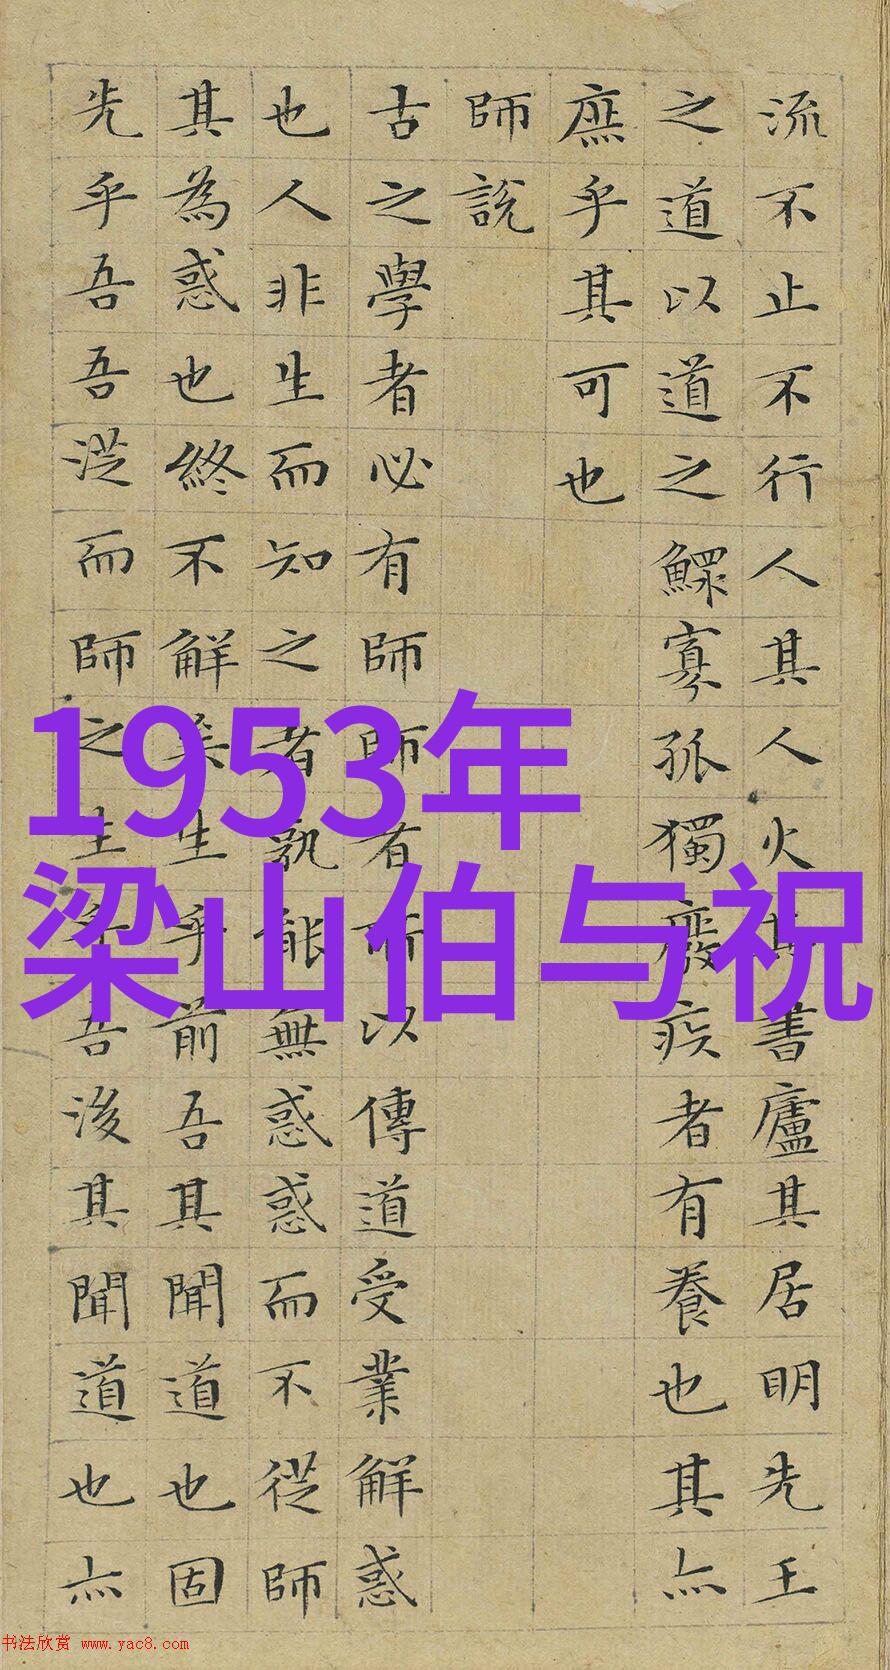 流不止不行人其人火其書廬其居明先王
之道以道之鰥寡孤獨廢疾者有養也其亦
庶乎其可也
師說
古之學者必有師師者所以傳道受業解惑
也人非生而知之者孰能無惑惑而不從師
其為惑也終不解矣生乎前吾其聞道也固
先乎吾吾從而師之生乎吾後其聞道也亦
1953年
梁山伯与祝
书法欣赏 www.yac8.com